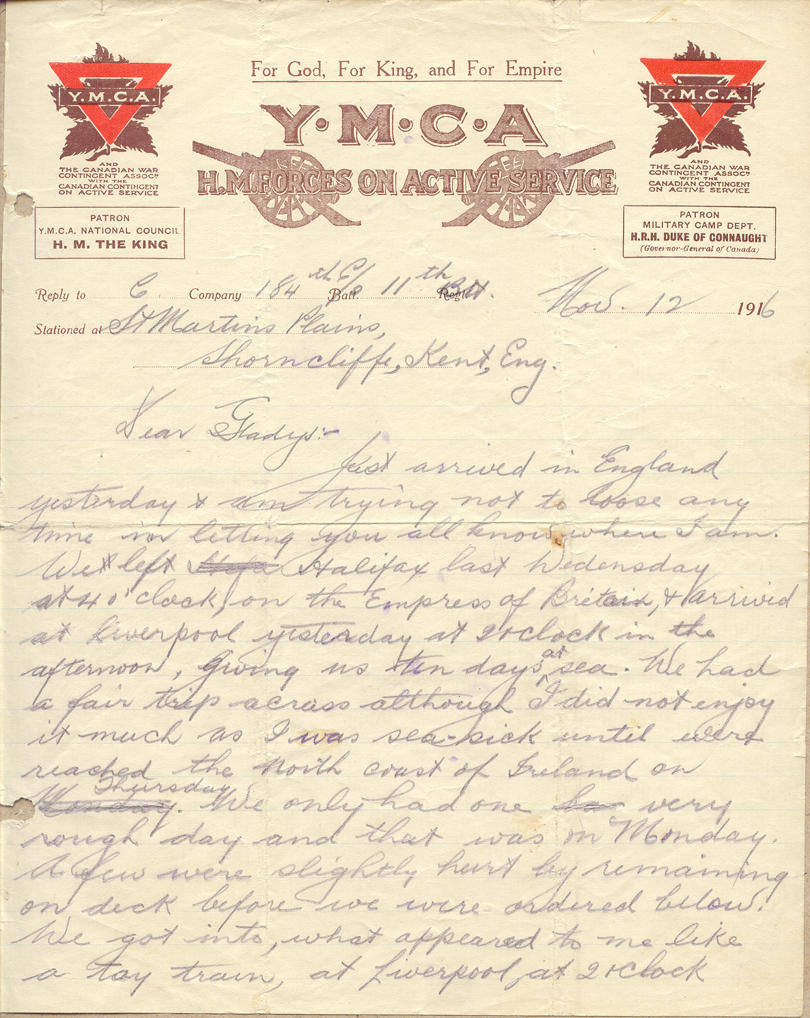 For God, For King, and For Empire
Y.M.C.A.
AND
THE CANADIAN WAR
CONTINGENT ASSOCN
WITH THE
CANADIAN CONTINGENT
ON ACTIVE SERVICE
Y·M·C·A
H.M. FORCES ON ACTIVE SERVICE
Y.M.C.A.
AND
THE CANADIAN WAR
CONTINGENT ASSOCN
WITH THE
CANADIAN CONTINGENT
ON ACTIVE SERVICE
PATRON
Y.M.C.A. NATIONAL COUNCIL
H. M. THE KING
PATRON
MILITARY CAMP DEPT.
H.R.H. DUKE OF CONNAUGHT
(Governor-General of Canada)
Reply to C Company 184th Batt. 11th Nov. 12 1916
Stationed at St Martins Plains,
Shorncliffe, Kent, Eng.
Dear Gladys:-
Just arrived in England
yesterday & am trying not to loose any
time in letting you all know where I am.
We left Halifax last Wedensday
at 4 o'clock, on the Empress of Britain, & arrived
at Liverpool yesterday at 2 oclock in the
afternoon, giving us ten days at sea. We had
a fair trip across although I did not enjoy
it much as I was sea-sick until were
reached the north coast of Ireland on
Monday Thursday. We only had one very
rough day and that was on Monday.
A few were slightly hurt by remaining
on deck before we were ordered below.
We got into, what appeared to me like
a toy train, at Liverpool, at 2 oclock